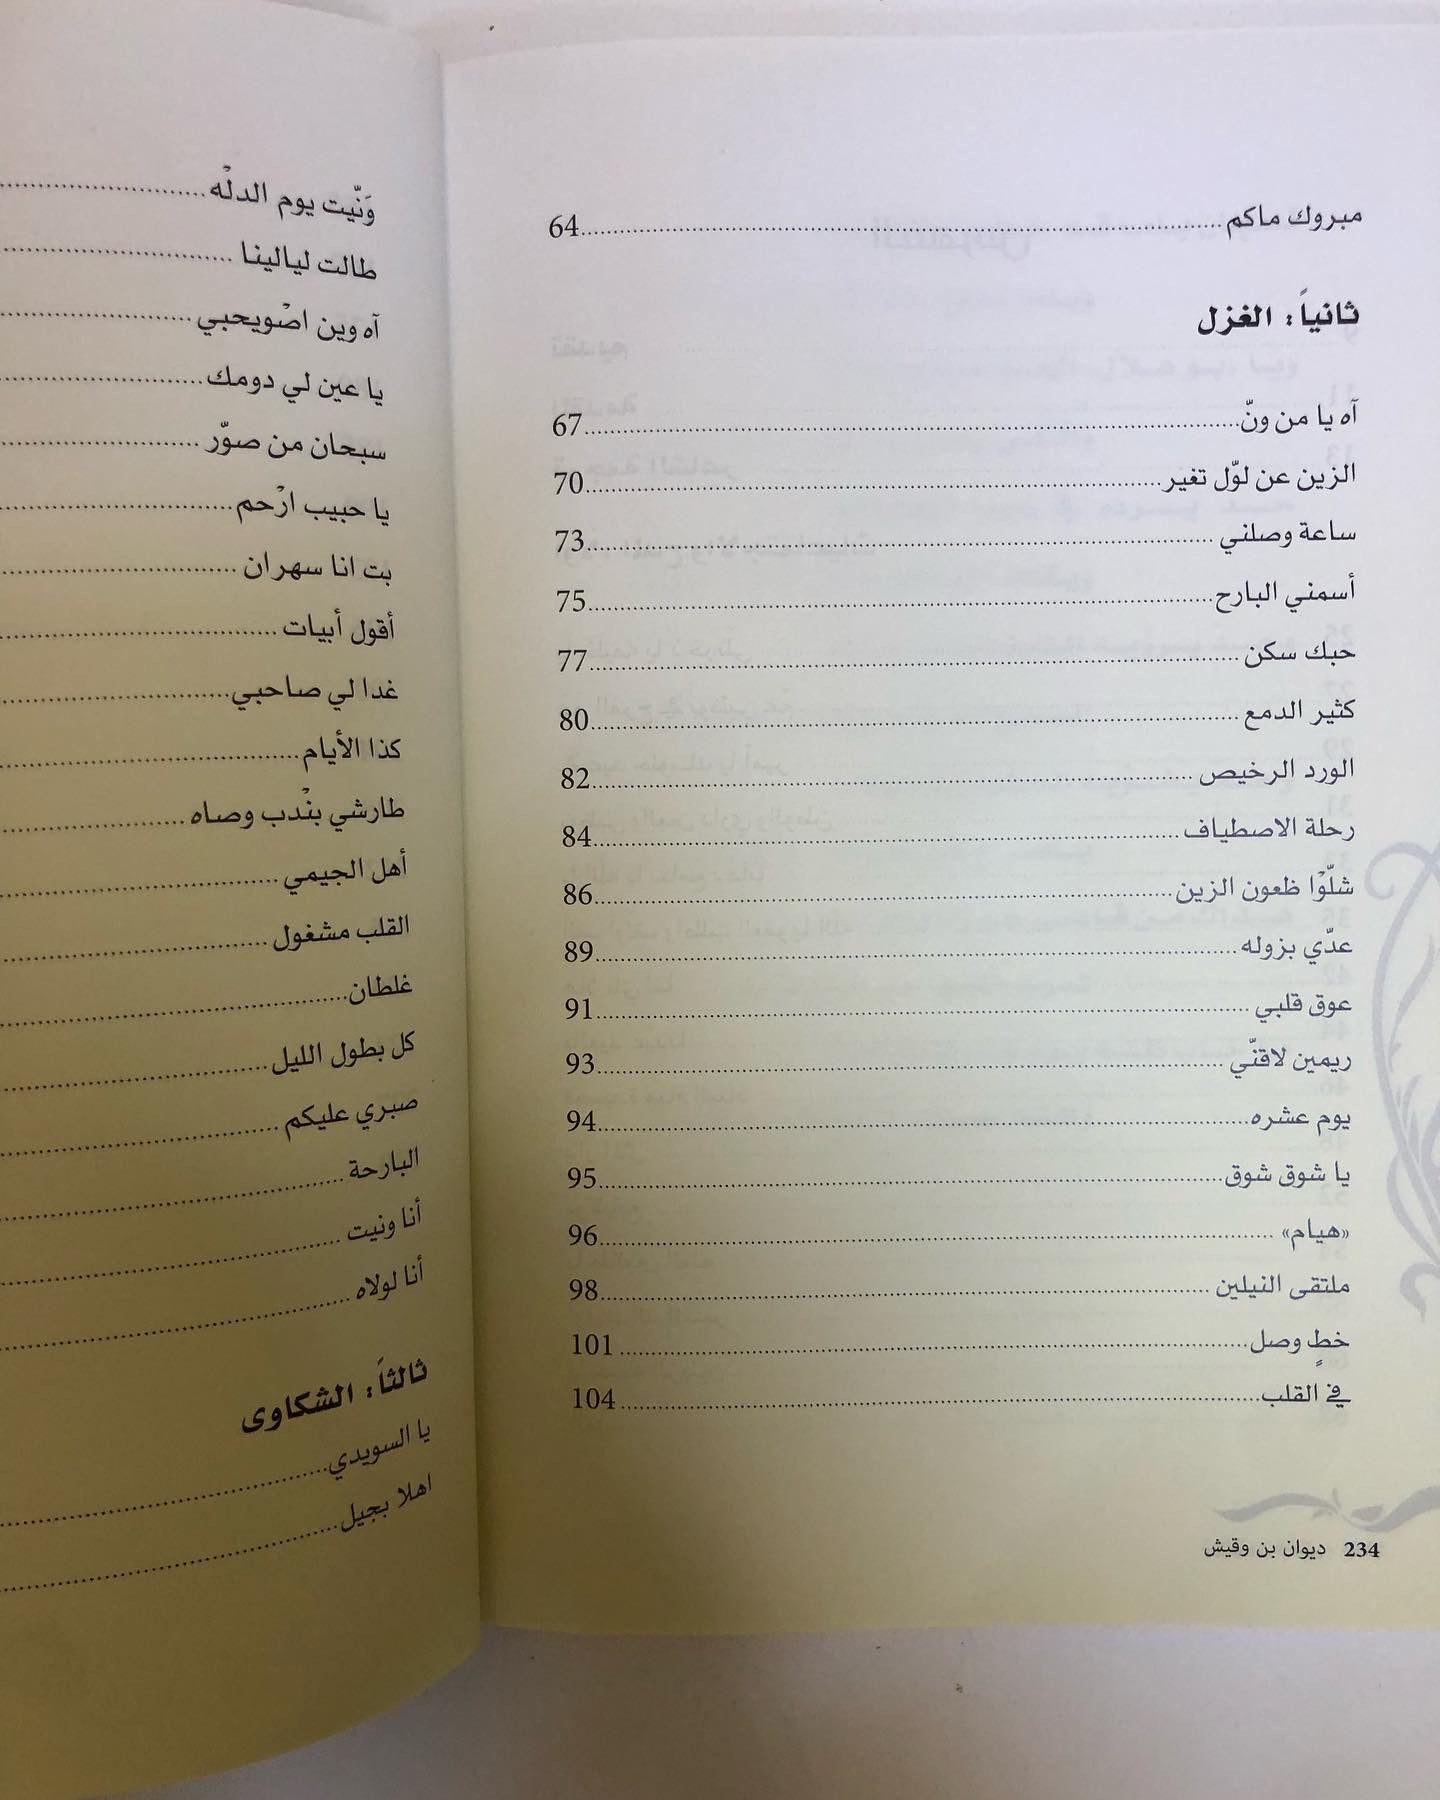 مبروك ماكم ........ 64
ثانياً: الغزل
آه يا من ونّ ........ 67
الزين عن لوّل تغير ........ 70
ساعة وصلني ........ 73
أسمني البارح ........ 75
حبك سكن ........ 77
كثير الدمع ........ 80
الورد الرخيص ........ 82
رحلة الاصطياف ........ 84
شلّوْا ظعون الزين ........ 86
عدّي بزوله ........ 89
عوق قلبي ........ 91
ريمين لاقنّي ........ 93
يوم عشره ........ 94
يا شوق شوق ........ 95
«هيام» ........ 96
ملتقى النيلين ........ 98
خطٍ وصل ........ 101
في القلب ........ 104
234 ديوان بن وقيش
وَنّيت يوم الدلْه ........
طالت ليالينا ........
آه وين اصْويحبي ........
يا عين لي دومك ........
سبحان من صوّر ........
يا حبيب ارْحم ........
بت انا سهران ........
أقول أبيات ........
غدا لي صاحبي ........
كذا الأيام ........
طارشي بنْدب وصاه ........
أهل الجيمي ........
القلب مشغول ........
غلطان ........
كل بطول الليل ........
صبري عليكم ........
البارحة ........
أنا ونيت ........
أنا لولاه ........
ثالثاً: الشكاوى
يا السويدي ........
اهلا بجيل ........